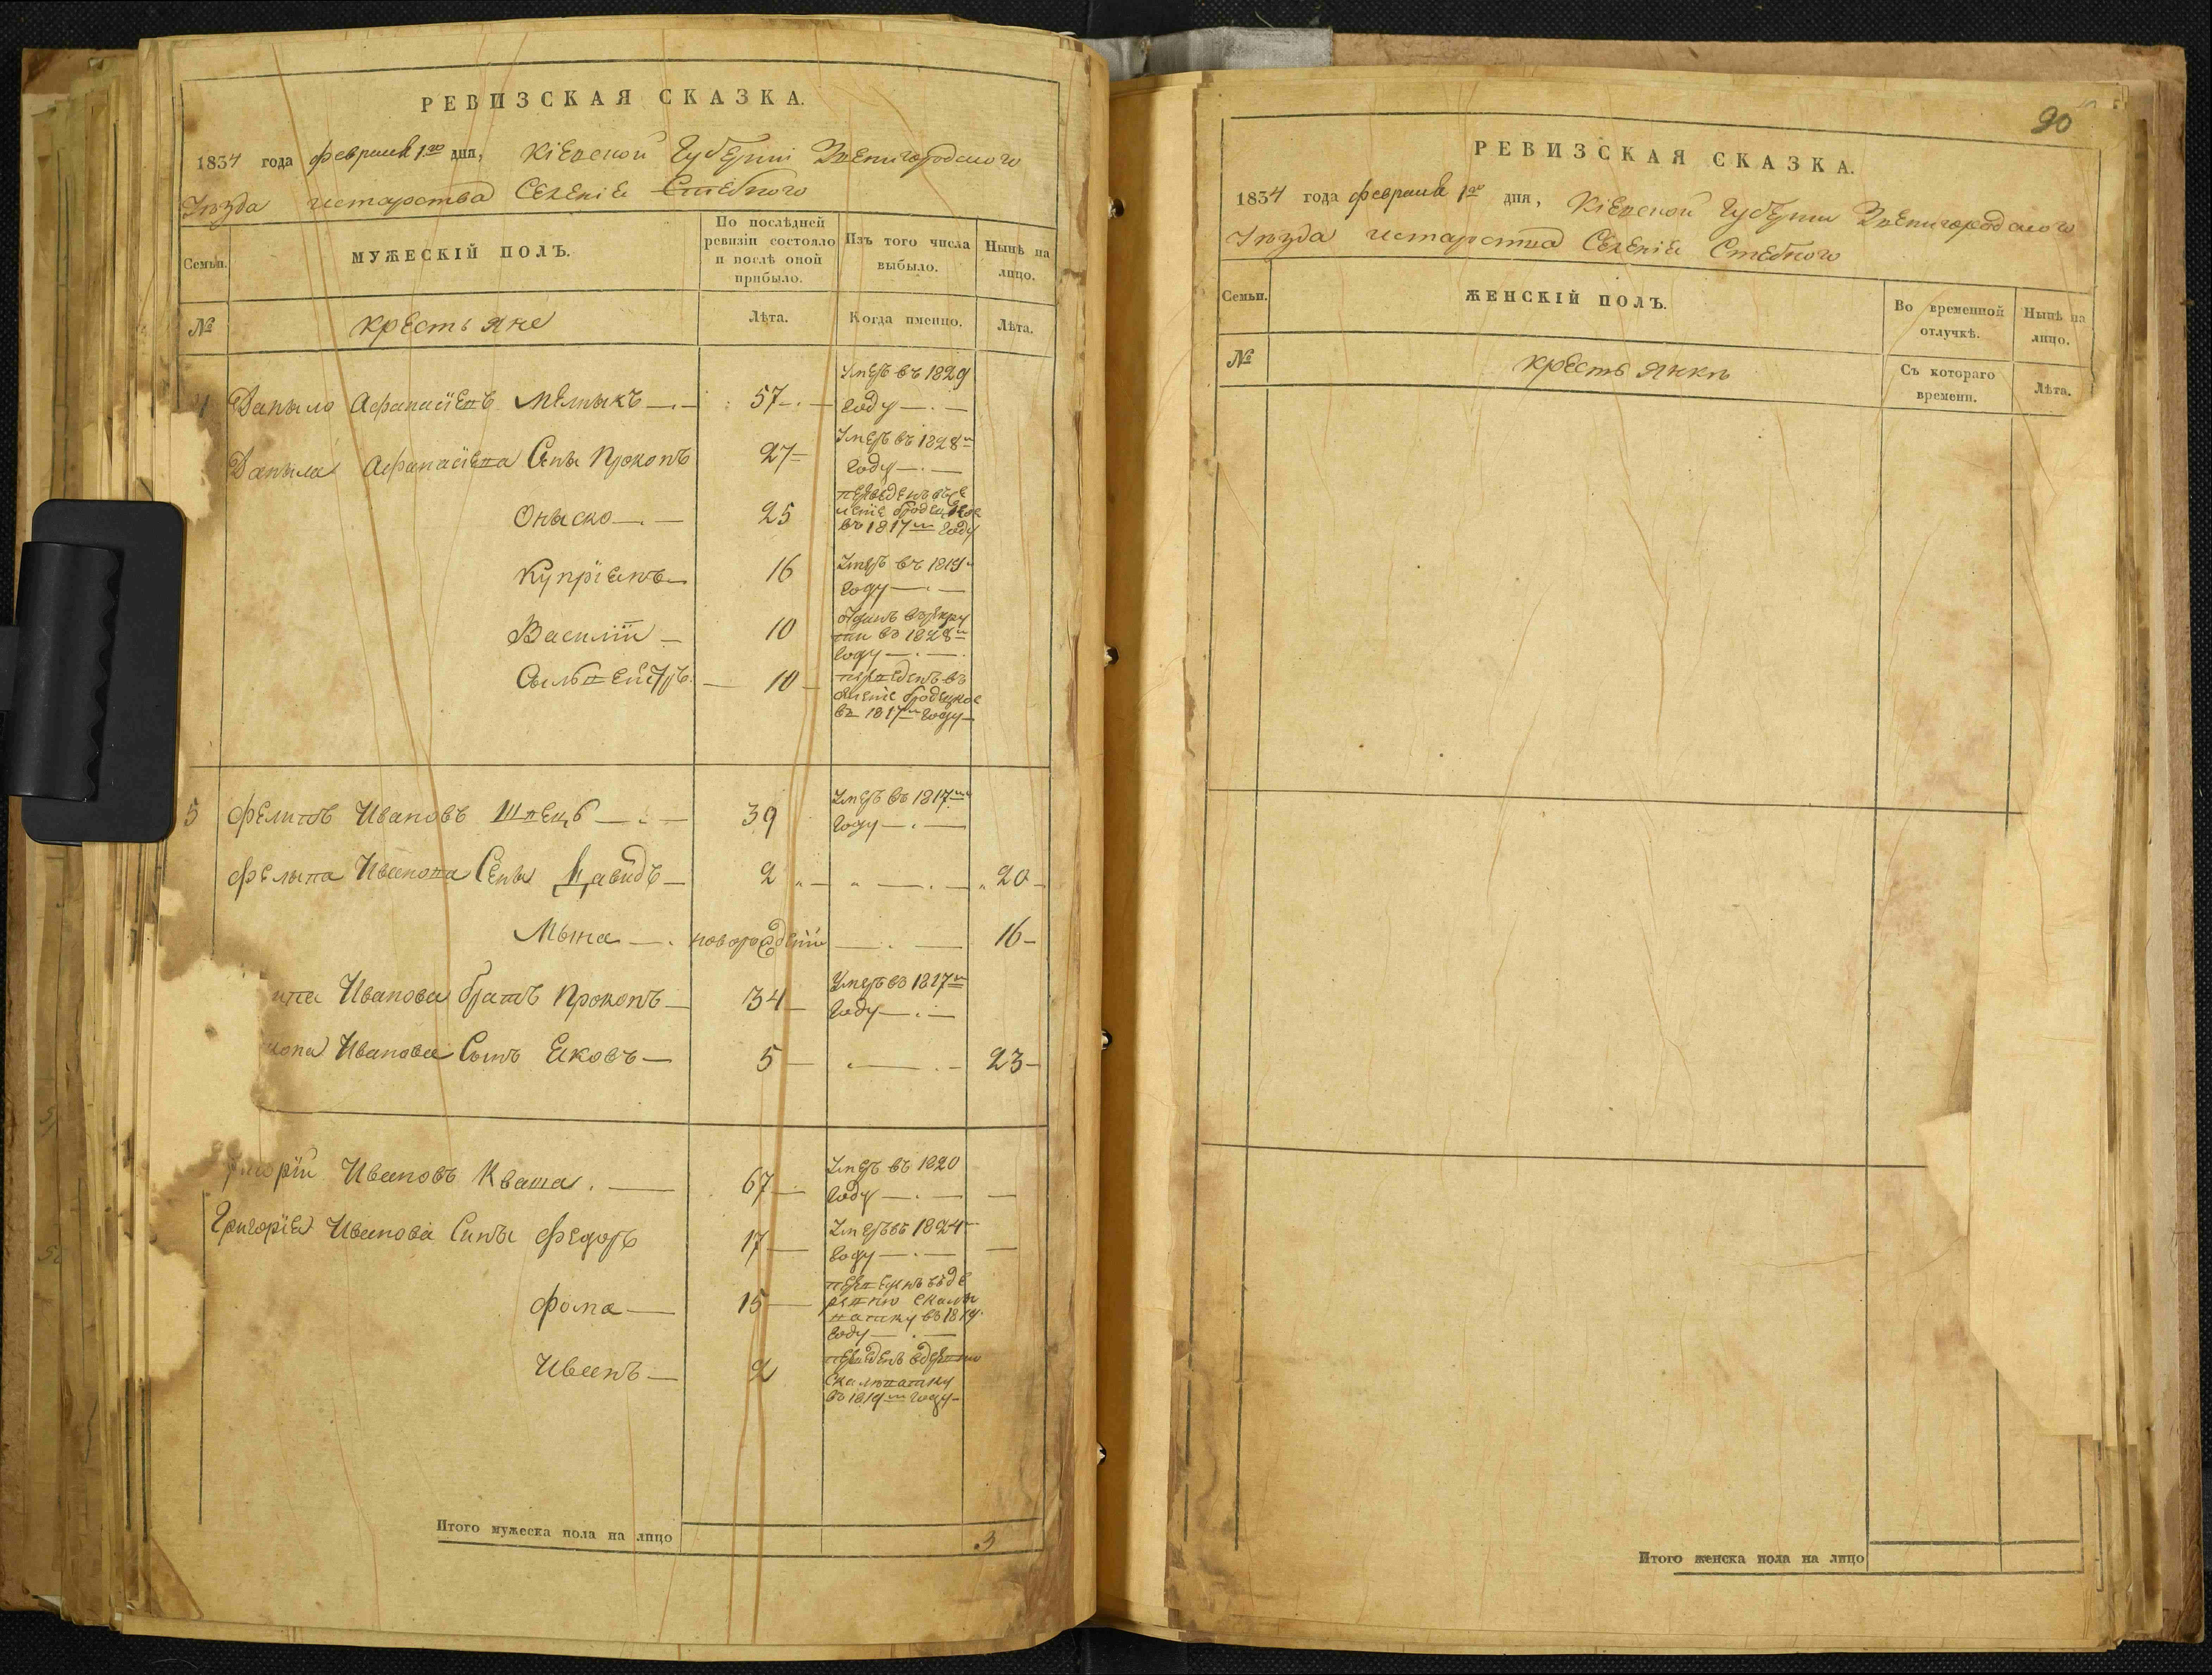 РЕВИЗСКАЯ СКАЗКА.
1834 года февраля 1го дня, Кіевской Губерніи Звенигородского
Уезда истароства Селеніе Стебного
Семьи. МУЖЕСКІЙ ПОЛЪ. По послѣдней ревизіи состояло и послѣ оной прибыло. Изъ того числа выбыло. Нынѣ на лицо.
№ крестьяне Лѣта. Когда именно. Лѣта.
4 Даныло Афанасіевъ Мелныкъ 57 Умеръ въ 1829
году
Даныла Афанасіева Сены Прокопъ 27 Умеръ въ 1828м
году
Онаско 25 переведенъ въ се
леніе бродецкое
въ 1817м году
Купріанъ 16 Умеръ въ 1819
году
Василій 10 отданъ в рекру
ти въ 1828м
году
Сыльвейстръ 10 переведенъ въ
селеніе бродецкое
въ 1817м году
5 Фелипъ Ивановъ Швецъ 39 Умеръ въ 1817м
году
Фелыпа Иванова Сены Давидъ 2 20
Мына новорожденій 16
ипа Иванова братъ Прокопъ 34 Умеръ въ 1817м
году
копа Иванова Сынъ Яковъ 5 23
горій Ивановъ Кваша 67 Умеръ въ 1820
году
Григорія Иванова Сины Федоръ 17 Умеръ въ 1824
году
Фома 15 въ де
ревню
ватку въ 1819
году
Иванъ 2 переведенъ в деревню
Скалеватку
въ 1819м году
Итого мужеска пола на лицо 3
90
РЕВИЗСКАЯ СКАЗКА.
1834 года февраля 1го дня, Кіевской Губерніи Звенигородского
Уезда истароства Селеніе Стебного
Семьи. ЖЕНСКІЙ ПОЛЪ. Во временной отлучкѣ. Нынѣ на лицо.
№ крестьянки Съ котораго времени. Лѣта.
Итого женска пола на лицо